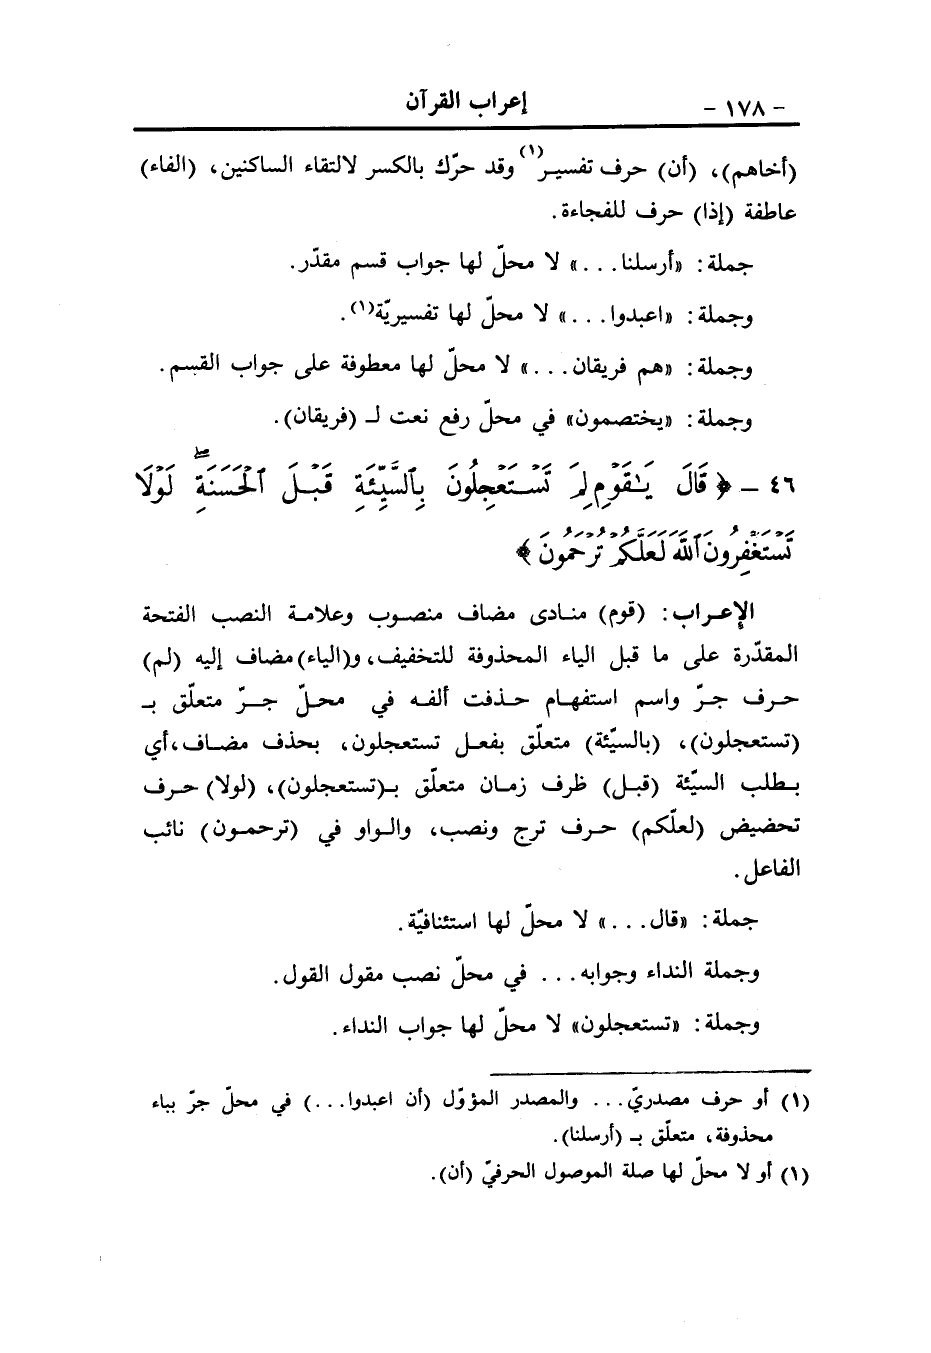 - ١٧٨ - إعراب القرآن
(أخاهم)، (أن) حرف تفسير(١) وقد حرّك بالكسر لالتقاء الساكنين، (الفاء)
عاطفة (إذا) حرف للفجاءة.
جملة: «أرسلنا...» لا محلّ لها جواب قسم مقدّر.
وجملة: «اعبدوا...» لا محلّ لها تفسيريّة(١).
وجملة: «هم فريقان...» لا محلّ لها معطوفة على جواب القسم.
وجملة: «يختصمون» في محلّ رفع نعت لـ (فريقان).
٤٦ - ﴿ قَالَ يَـٰقَوْمِ لِمَ تَسْتَعْجِلُونَ بِٱلسَّيِّئَةِ قَبْلَ ٱلْحَسَنَةِۖ لَوْلَا
تَسْتَغْفِرُونَ ٱللَّهَ لَعَلَّكُمْ تُرْحَمُونَ ﴾
الإعراب: (قوم) منادى مضاف منصوب وعلامة النصب الفتحة
المقدّرة على ما قبل الياء المحذوفة للتخفيف، و(الياء) مضاف إليه (لم)
حرف جرّ واسم استفهام حذفت ألفه في محلّ جرّ متعلّق بـ
(تستعجلون)، (بالسيّئة) متعلّق بفعل تستعجلون، بحذف مضاف، أي
بطلب السيّئة (قبل) ظرف زمان متعلّق بـ(تستعجلون)، (لولا) حرف
تحضيض (لعلّكم) حرف ترج ونصب، والواو في (ترحمون) نائب
الفاعل.
جملة: «قال...» لا محلّ لها استئنافيّة.
وجملة النداء وجوابه... في محلّ نصب مقول القول.
وجملة: «تستعجلون» لا محلّ لها جواب النداء.
(١) أو حرف مصدريّ... والمصدر المؤوّل (أن اعبدوا...) في محلّ جرّ بباء
محذوفة، متعلّق بـ (أرسلنا).
(١) أو لا محلّ لها صلة الموصول الحرفيّ (أن).